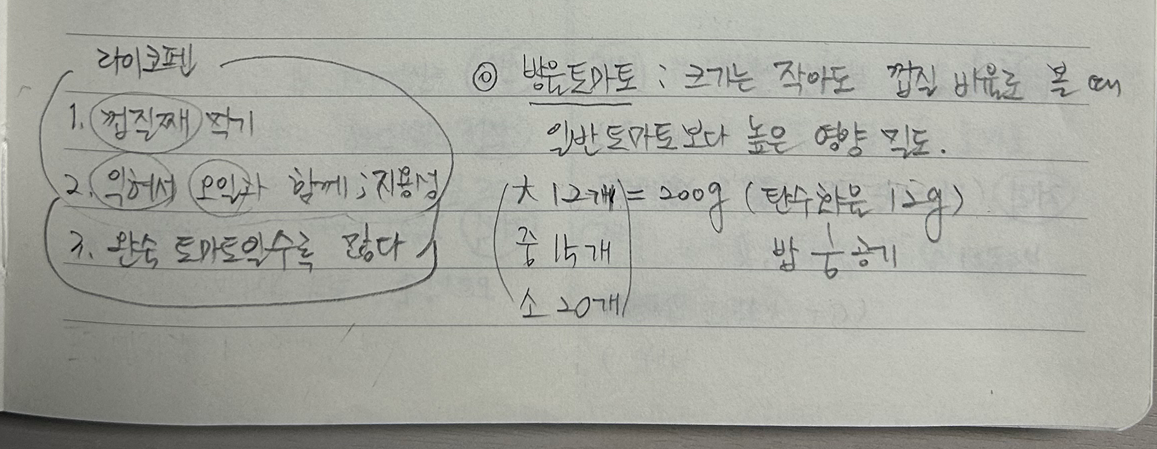 라이코펜
1. 껍질째 먹기
2. 익혀서 오일과 함께; 지용성
3. 완숙 토마토일수록 많다
◎ 방울토마토 ; 크기는 작아도 껍질 비율로 볼 때
일반토마토보다 높은 영양 밀도.
大 12개 = 200g (탄수화물 12g)
중 15개 밥 1/6 공기
소 20개